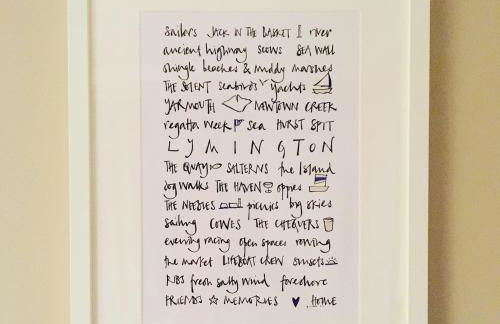 Sailors JACK IN THE BASKET river
ancient highway SCOWS SEA WALL
shingle beaches & muddy marshes
THE SOLENT seabirds yachts
YARMOUTH NEWTOWN CREEK
regatta week sea HURST SPIT
LYMINGTON
THE QUAY SALTERNS the Island
dog walks THE HAVEN oppies
THE NEEDLES picnics big skies
sailing COWES THE CHEQUERS
evening racing open spaces rowing
the market LIFEBOAT CREW sunsets
RIBS fresh salty wind foreshore
FRIENDS MEMORIES HOME